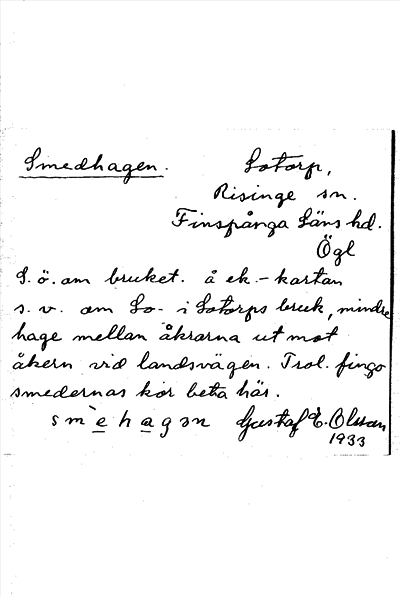 Smedhagen. Lotorp,
Risinge sn.
Finspånga Läns hd.
Ögl
S. ö. om bruket. å ek.-kartan
s. v. om Lo- i Lotorps bruk, mindre
hage mellan åkrarna ut mot
åkern vid landsvägen. Trol. fingo
smedernas kor beta här.
sm`ehagən Gustaf E. Olsson
1933